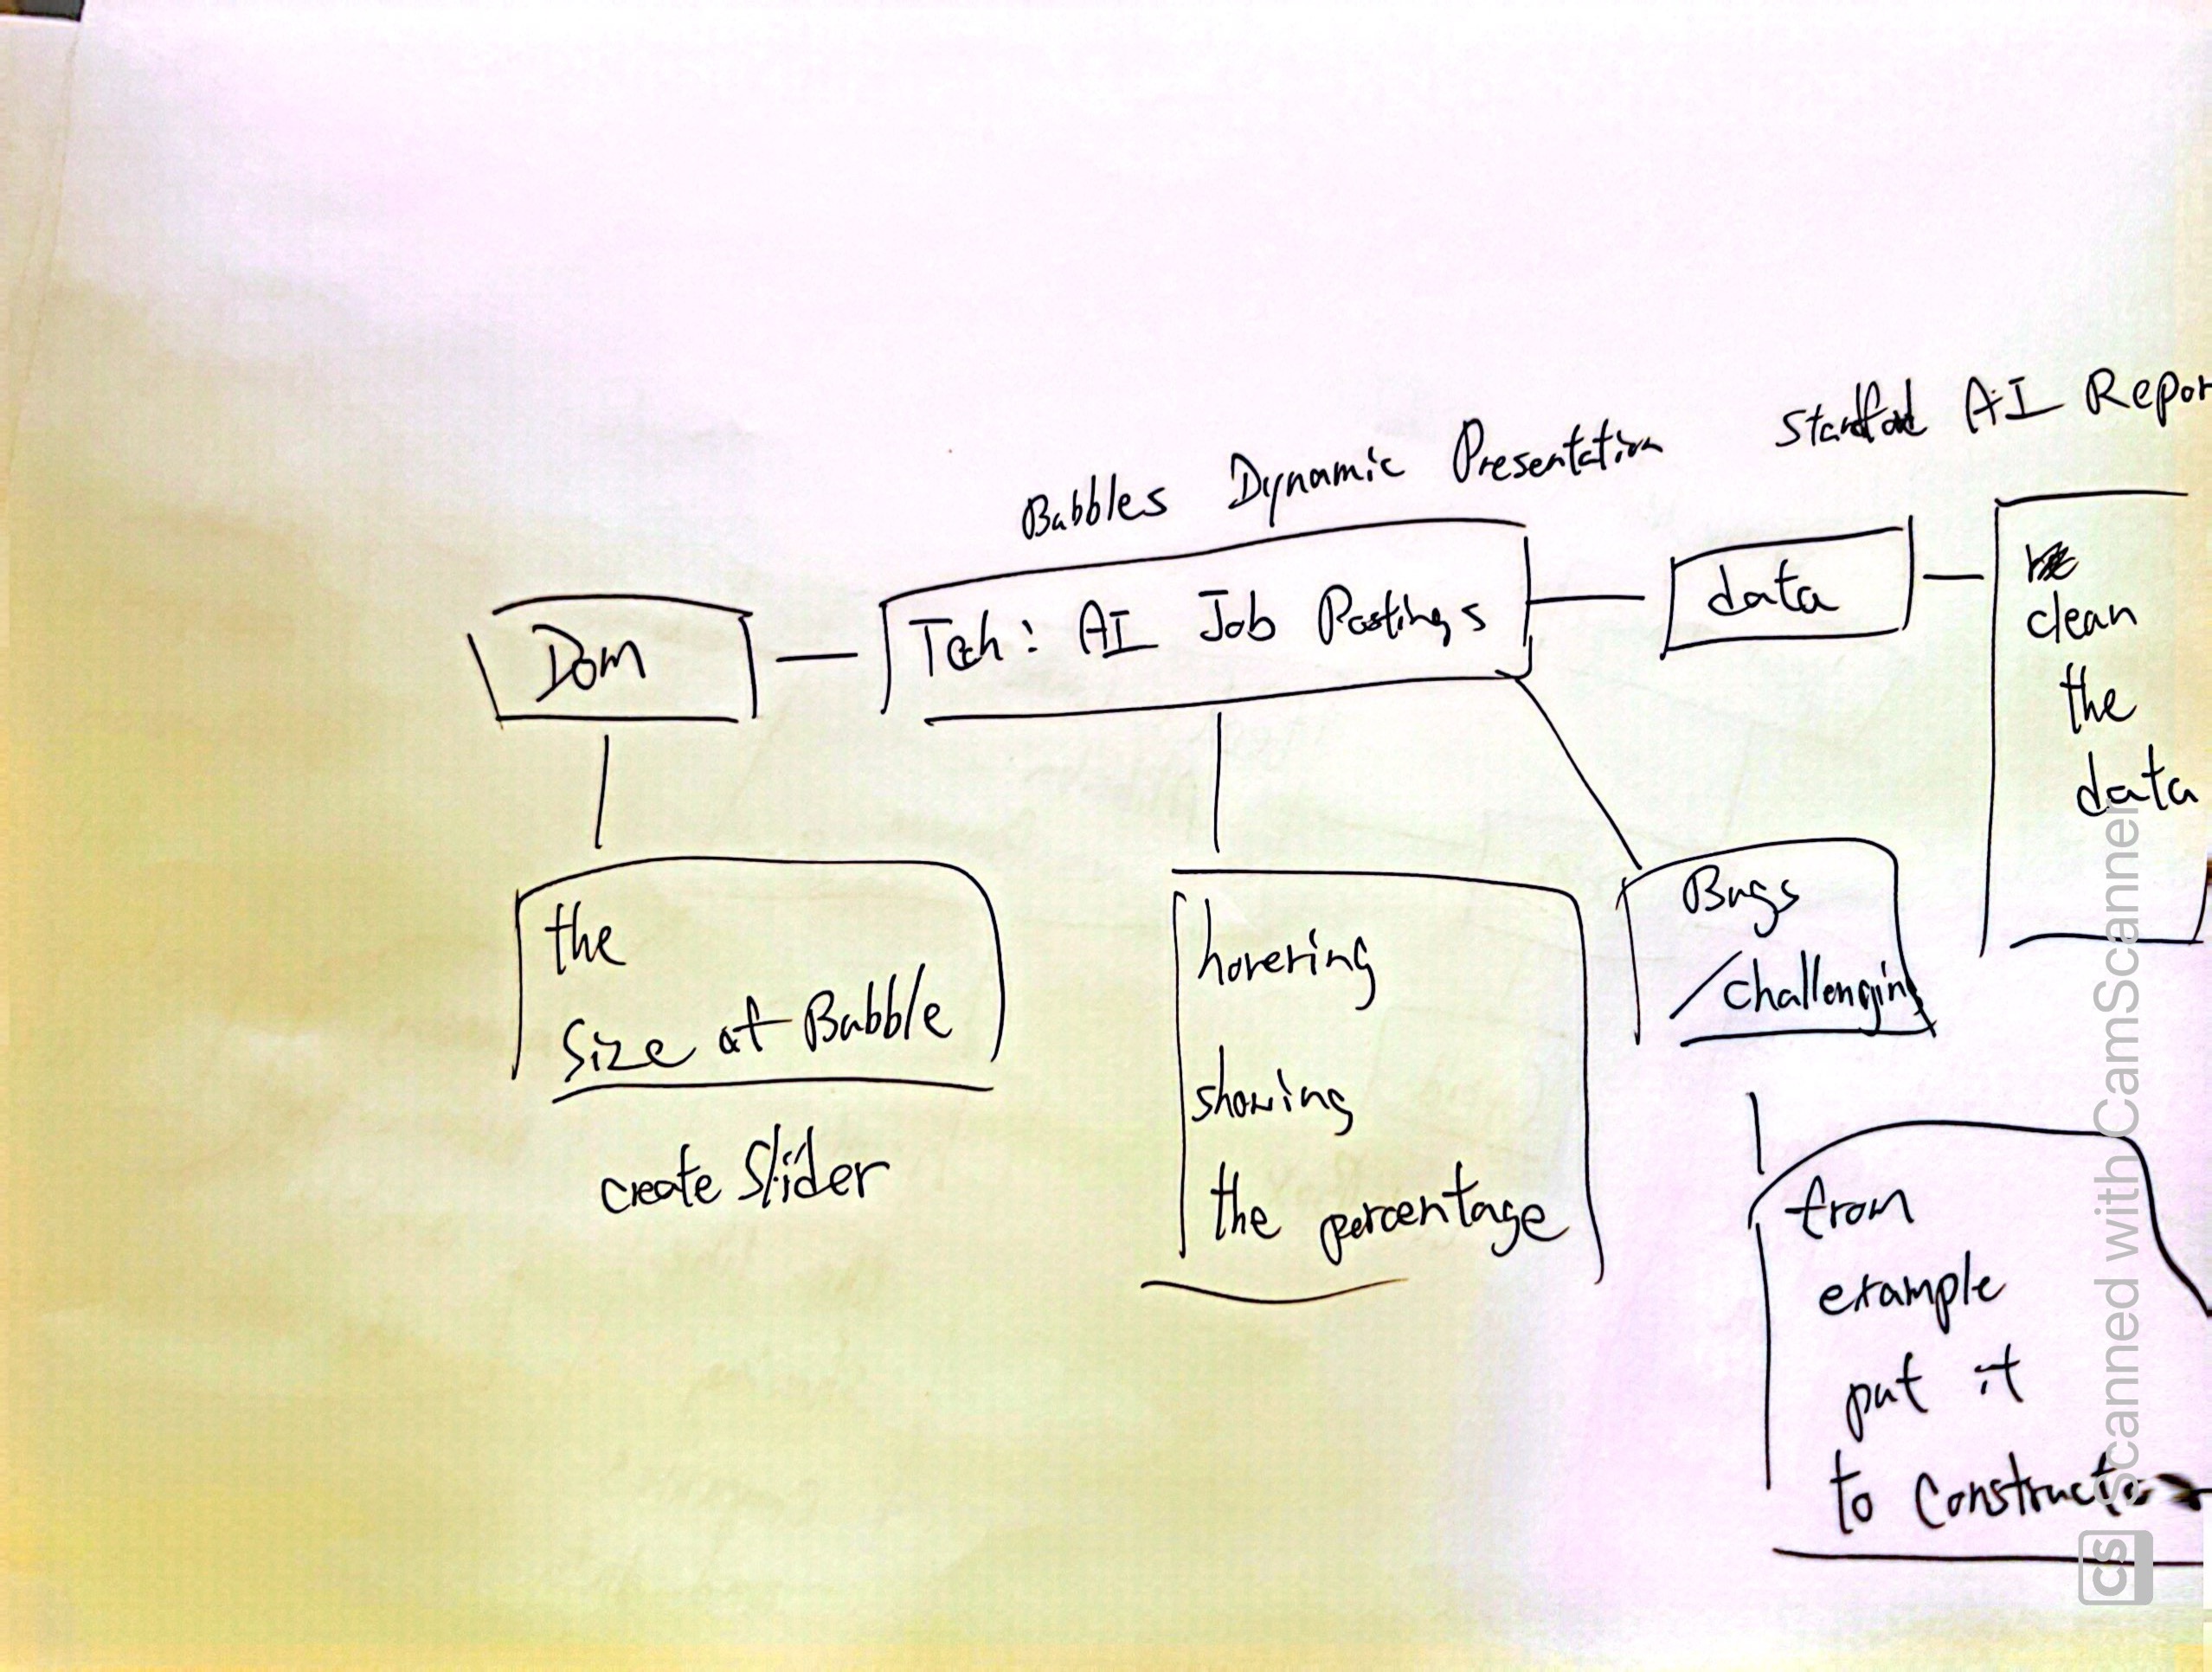 Babbles Dynamic Presentation
AI Repor
Dom
Tech: AI Job Postings
data
clean
the
data
the
Size of Babble
create Slider
hovering
showing
the percentage
Bugs
/challenging
from
example
put it
to Constructor
Scanned with CamScanner
CS